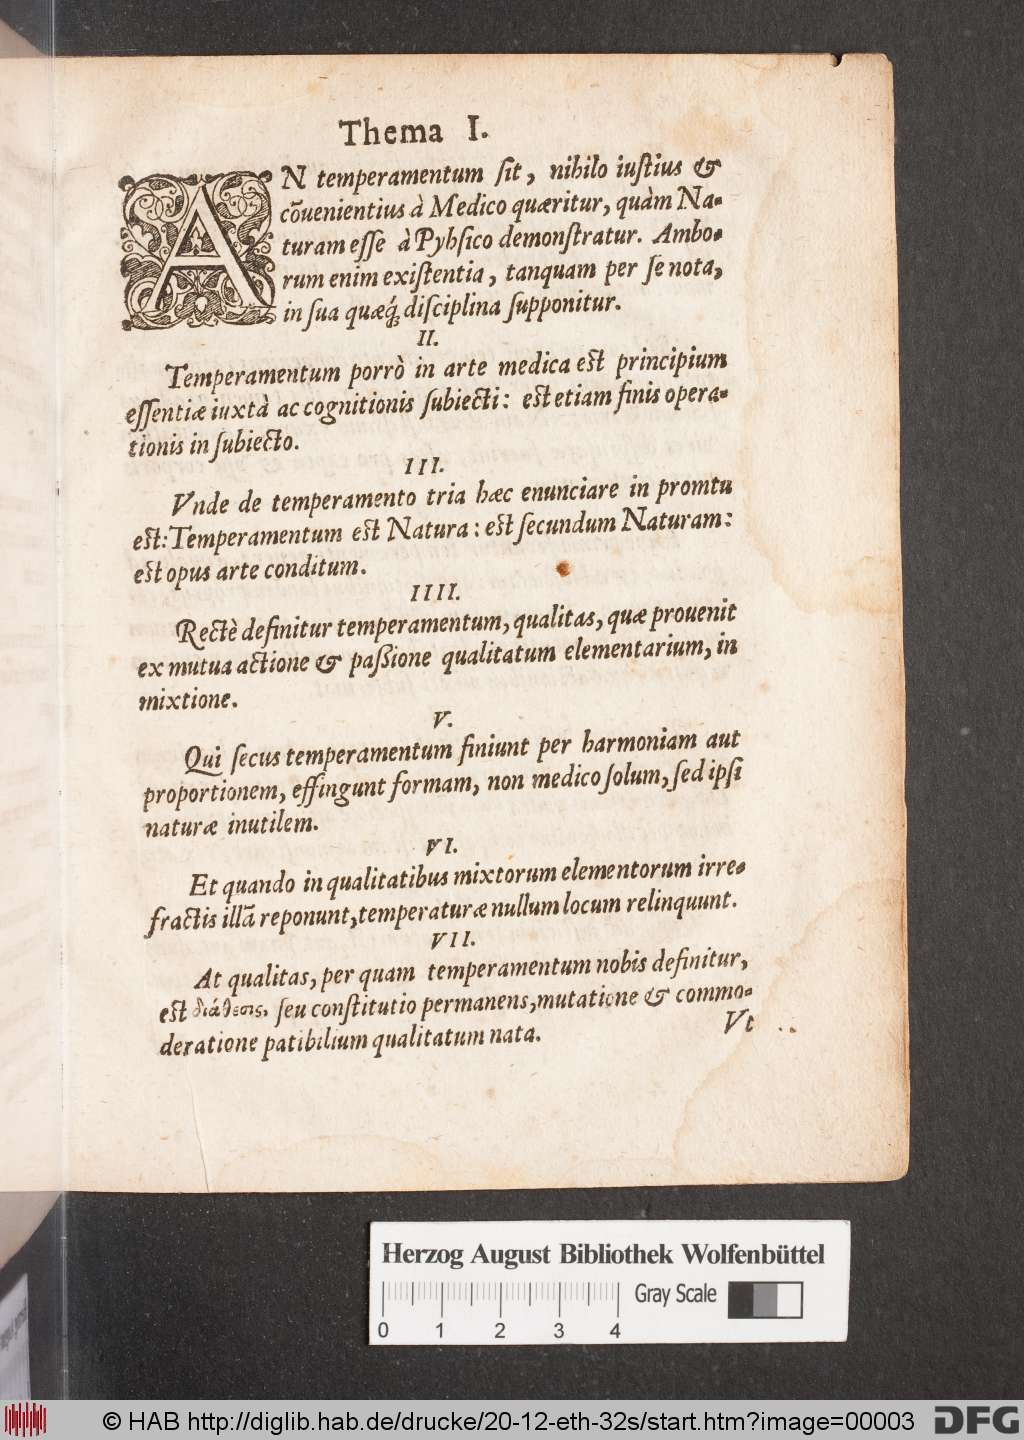 Thema I.
AN temperamentum ſit, nihilo iuſtius &
cōuenientius à Medico quæritur, quàm Na-
turam eſſe à Pyhſico demonſtratur. Ambo-
rum enim exiſtentia, tanquam per ſe nota,
in ſua quæq́; diſciplina ſupponitur.
II.
Temperamentum porrò in arte medica eſt principium
eſſentiæ iuxtà ac cognitionis ſubiecti: eſt etiam finis opera-
tionis in ſubiecto.
III.
Vnde de temperamento tria hæc enunciare in promtu
eſt: Temperamentum eſt Natura: eſt ſecundum Naturam:
eſt opus arte conditum.
IIII.
Rectè definitur temperamentum, qualitas, quæ prouenit
ex mutua actione & paßione qualitatum elementarium, in
mixtione.
V.
Qui ſecus temperamentum finiunt per harmoniam aut
proportionem, effingunt formam, non medico ſolum, ſed ipſi
naturæ inutilem.
VI.
Et quando in qualitatibus mixtorum elementorum irre-
fractis illā reponunt, temperaturæ nullum locum relinquunt.
VII.
At qualitas, per quam temperamentum nobis definitur,
eſt διάθεσις, ſeu conſtitutio permanens, mutatione & commo-
deratione patibilium qualitatum nata.
Vt
Herzog August Bibliothek Wolfenbüttel
Gray Scale
0 1 2 3 4
© HAB http://diglib.hab.de/drucke/20-12-eth-32s/start.htm?image=00003
DFG